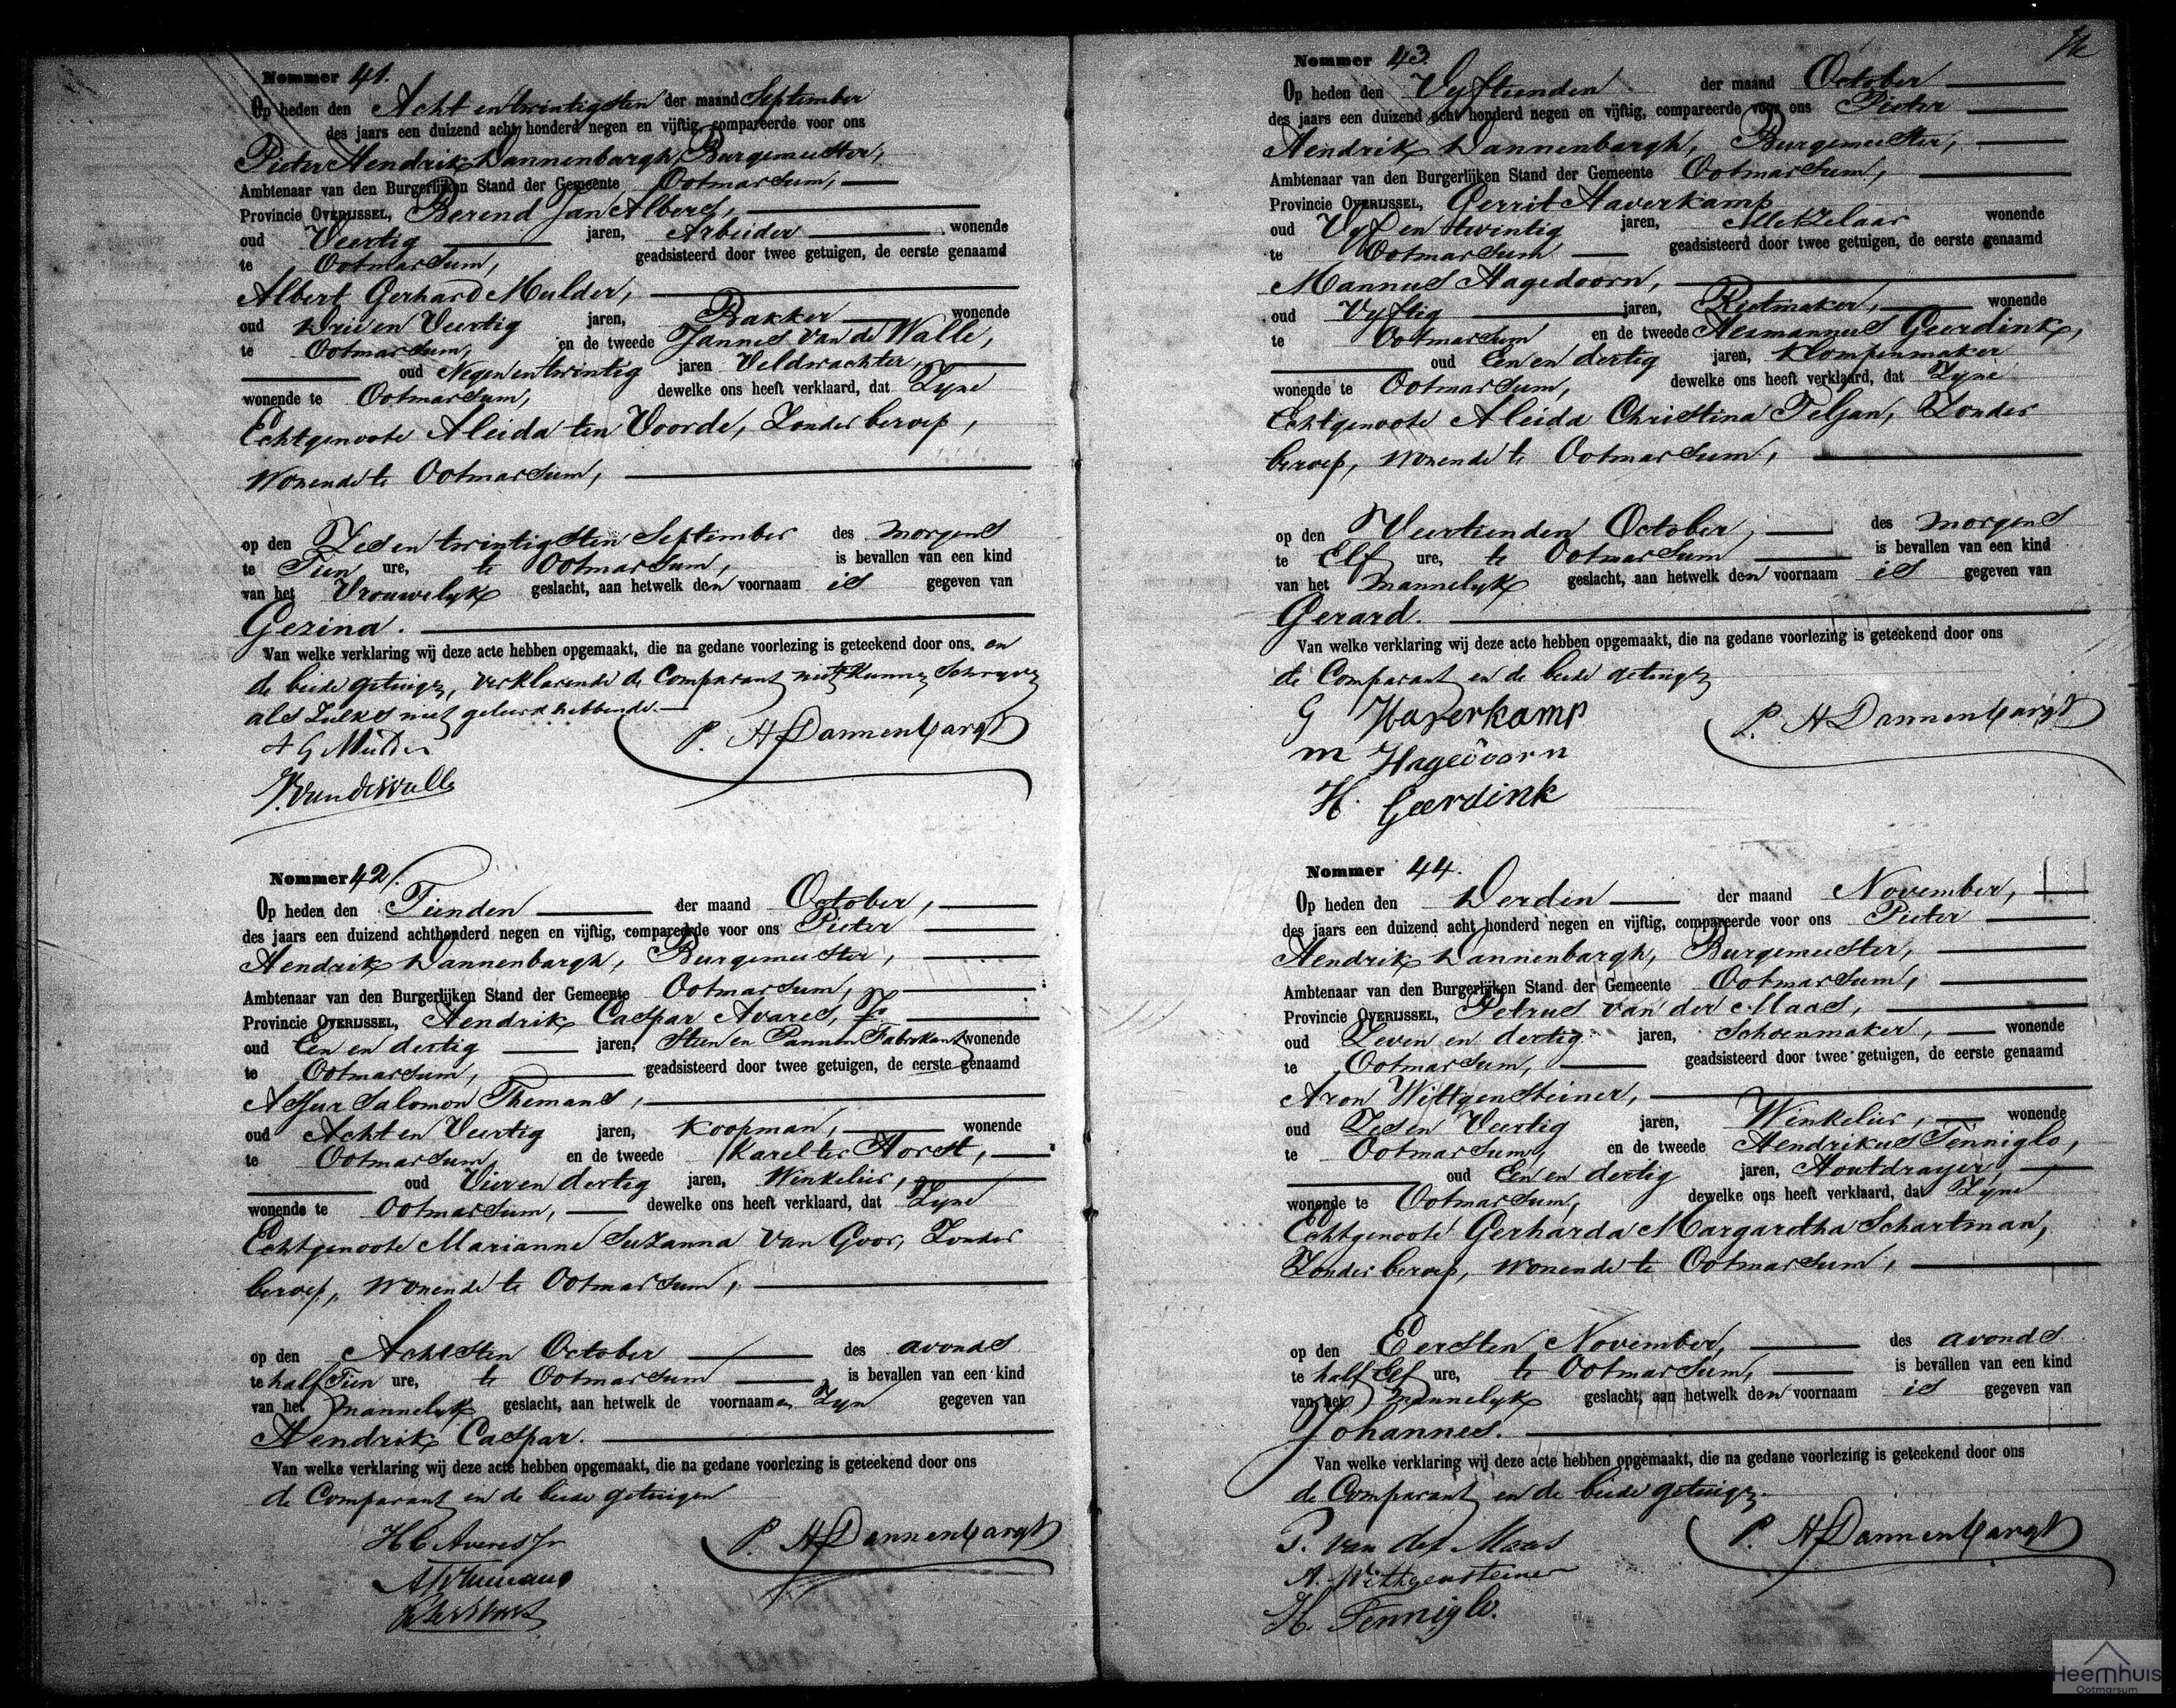 Nommer 41.
Op heden den Acht en twintigsten der maand September
des jaars een duizend acht honderd negen en vijftig, compareerde voor ons
Pieter Hendrik Dannenbargh, Burgemeester,
Ambtenaar van den Burgerlijken Stand der Gemeente Ootmarsum,
Provincie OVERIJSSEL, Berend Jan Albers,
oud Veertig jaren, Arbeider wonende
te Ootmarsum, geadsisteerd door twee getuigen, de eerste genaamd
Albert Gerhard Mulder,
oud Drie en Veertig jaren, Bakker wonende
te Ootmarsum, en de tweede Jannes van de Walle,
oud Negen en twintig jaren Veldwachter,
wonende te Ootmarsum, dewelke ons heeft verklaard, dat Zyne
Echtgenoote Aleida ten Voorde, Zonder beroep,
wonende te Ootmarsum,
op den Zes en twintigsten September des morgens
te Tien ure, te Ootmarsum, is bevallen van een kind
van het Vrouwelyk geslacht, aan hetwelk den voornaam is gegeven van
Gezina.
Van welke verklaring wij deze acte hebben opgemaakt, die na gedane voorlezing is geteekend door ons, en
de beide getuigen, verklarende de Comparant niet te kunnen Schryven
als Zulks niet geleerd hebbende.
A G Mulder P. H Dannenbargh
J. van de Walle
Nommer 42.
Op heden den Tienden der maand October,
des jaars een duizend achthonderd negen en vijftig, compareerde voor ons Pieter
Hendrik Dannenbargh, Burgemeester,
Ambtenaar van den Burgerlijken Stand der Gemeente Ootmarsum,
Provincie OVERIJSSEL, Hendrik Caspar Avares, Jr
oud Een en dertig jaren, Steen en Pannen Fabrikant wonende
te Ootmarsum, geadsisteerd door twee getuigen, de eerste genaamd
Assur Salomon Themans,
oud Acht en Veertig jaren, Koopman, wonende
te Ootmarsum, en de tweede Karel ter Horst,
oud Vier en dertig jaren, Winkelier,
wonende te Ootmarsum, dewelke ons heeft verklaard, dat Zyne
Echtgenoote Marianne Suzanna van Goor, Zonder
beroep, wonende te Ootmarsum,
op den Achtsten October des avonds
te half Tien ure, te Ootmarsum is bevallen van een kind
van het mannelyk geslacht, aan hetwelk de voornaamen Zyn gegeven van
Hendrik Caspar.
Van welke verklaring wij deze acte hebben opgemaakt, die na gedane voorlezing is geteekend door ons
de Comparant en de beide getuigen
H C Avares Jr P. H Dannenbargh
A S Themans
K ter Horst
Nommer 43.
Op heden den Vyftienden der maand October
des jaars een duizend acht honderd negen en vijftig, compareerde voor ons Pieter
Hendrik Dannenbargh, Burgemeester,
Ambtenaar van den Burgerlijken Stand der Gemeente Ootmarsum,
Provincie OVERIJSSEL, Gerrit Haverkamp
oud Vyf en twintig jaren, Metzelaar wonende
te Ootmarsum geadsisteerd door twee getuigen, de eerste genaamd
Mannus Hagedoorn,
oud Vyftig jaren, Rietmaker, wonende
te Ootmarsum en de tweede Hermannus Geerdink,
oud Een en dertig jaren, Klompenmaker
wonende te Ootmarsum, dewelke ons heeft verklaard, dat Zyne
Echtgenoote Aleida Christina Teljan, Zonder
beroep, wonende te Ootmarsum,
op den Veertienden October, des morgens
te Elf ure, te Ootmarsum is bevallen van een kind
van het mannelyk geslacht, aan hetwelk den voornaam is gegeven van
Gerard.
Van welke verklaring wij deze acte hebben opgemaakt, die na gedane voorlezing is geteekend door ons
de Comparant en de beide getuigen
G Haverkamp P. H Dannenbargh
m Hagedoorn
H. Geerdink
Nommer 44.
Op heden den Derden der maand November,
des jaars een duizend acht honderd negen en vijftig, compareerde voor ons Pieter
Hendrik Dannenbargh, Burgemeester,
Ambtenaar van den Burgerlijken Stand der Gemeente Ootmarsum,
Provincie OVERIJSSEL, Petrus van der Maas,
oud Zeven en dertig jaren, Schoenmaker, wonende
te Ootmarsum, geadsisteerd door twee getuigen, de eerste genaamd
Aron Wittgensteiner,
oud Zes en Veertig jaren, Winkelier, wonende
te Ootmarsum, en de tweede Hendrikus Tenniglo,
oud Een en dertig jaren, Houtdrayer,
wonende te Ootmarsum, dewelke ons heeft verklaard, dat Zyne
Echtgenoote Gerharda Margaretha Schartman,
Zonder beroep, wonende te Ootmarsum,
op den Eersten November, des avonds
te half Elf ure, te Ootmarsum, is bevallen van een kind
van het mannelyk geslacht, aan hetwelk den voornaam is gegeven van
Johannes.
Van welke verklaring wij deze acte hebben opgemaakt, die na gedane voorlezing is geteekend door ons
de Comparant en de beide getuigen.
P. van der Maas P. H Dannenbargh
A. Witthgensteiner
H. Tenniglo.
Heemhuis
Ootmarsum